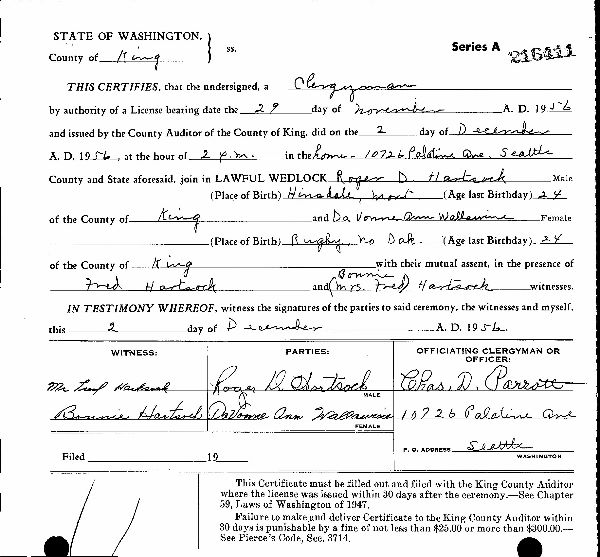 STATE OF WASHINGTON,
County of King } ss. Series A 216411
THIS CERTIFIES, that the undersigned, a Clergyman
by authority of a License bearing date the 29 day of November A. D. 1956
and issued by the County Auditor of the County of King, did on the 2 day of December
A. D. 1956, at the hour of 2 P.M. in the home - 10726 Palatine Ave. Seattle
County and State aforesaid, join in LAWFUL WEDLOCK Roger D. Hartsock Male
(Place of Birth) Hinsdale, Mont (Age last Birthday) 24
of the County of King and Da Vonne Ann Wallewine Female
(Place of Birth) Rugby, No Dak. (Age last Birthday) 24
of the County of King with their mutual assent, in the presence of
Bonnie
Fred Hartsock and (Mrs. Fred) Hartsock witnesses.
IN TESTIMONY WHEREOF, witness the signatures of the parties to said ceremony, the witnesses and myself,
this 2 day of December A. D. 1956.
WITNESS: PARTIES: OFFICIATING CLERGYMAN OR OFFICER:
Mr Fred Hartsock Roger D. Hartsock Chas. D. Parrott
MALE
Bonnie Hartsock DaVonne Ann Wallewine 10726 Palatine Ave
FEMALE
P. O. ADDRESS Seattle
WASHINGTON
Filed 19
This Certificate must be filled out and filed with the King County Auditor
where the license was issued within 30 days after the ceremony.—See Chapter
59, Laws of Washington of 1947.
Failure to make and deliver Certificate to the King County Auditor within
30 days is punishable by a fine of not less than $25.00 or more than $300.00.—
See Pierce's Code, Sec. 3714.